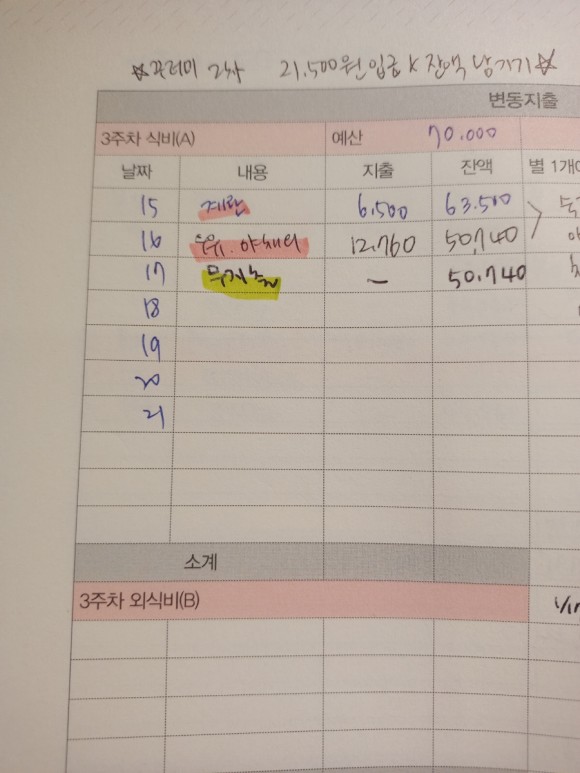 ☆꾸러미 2차 21,500원 입금 & 잔액 남기기☆
변동지출
3주차 식비(A) 예산 70.000
날짜 내용 지출 잔액 별 1개
15 계란 6,500 63,500
16 우유. 야채외 12.760 50,740
17 무지출 - 50.740
18
19
20
21
소계
3주차 외식비(B)